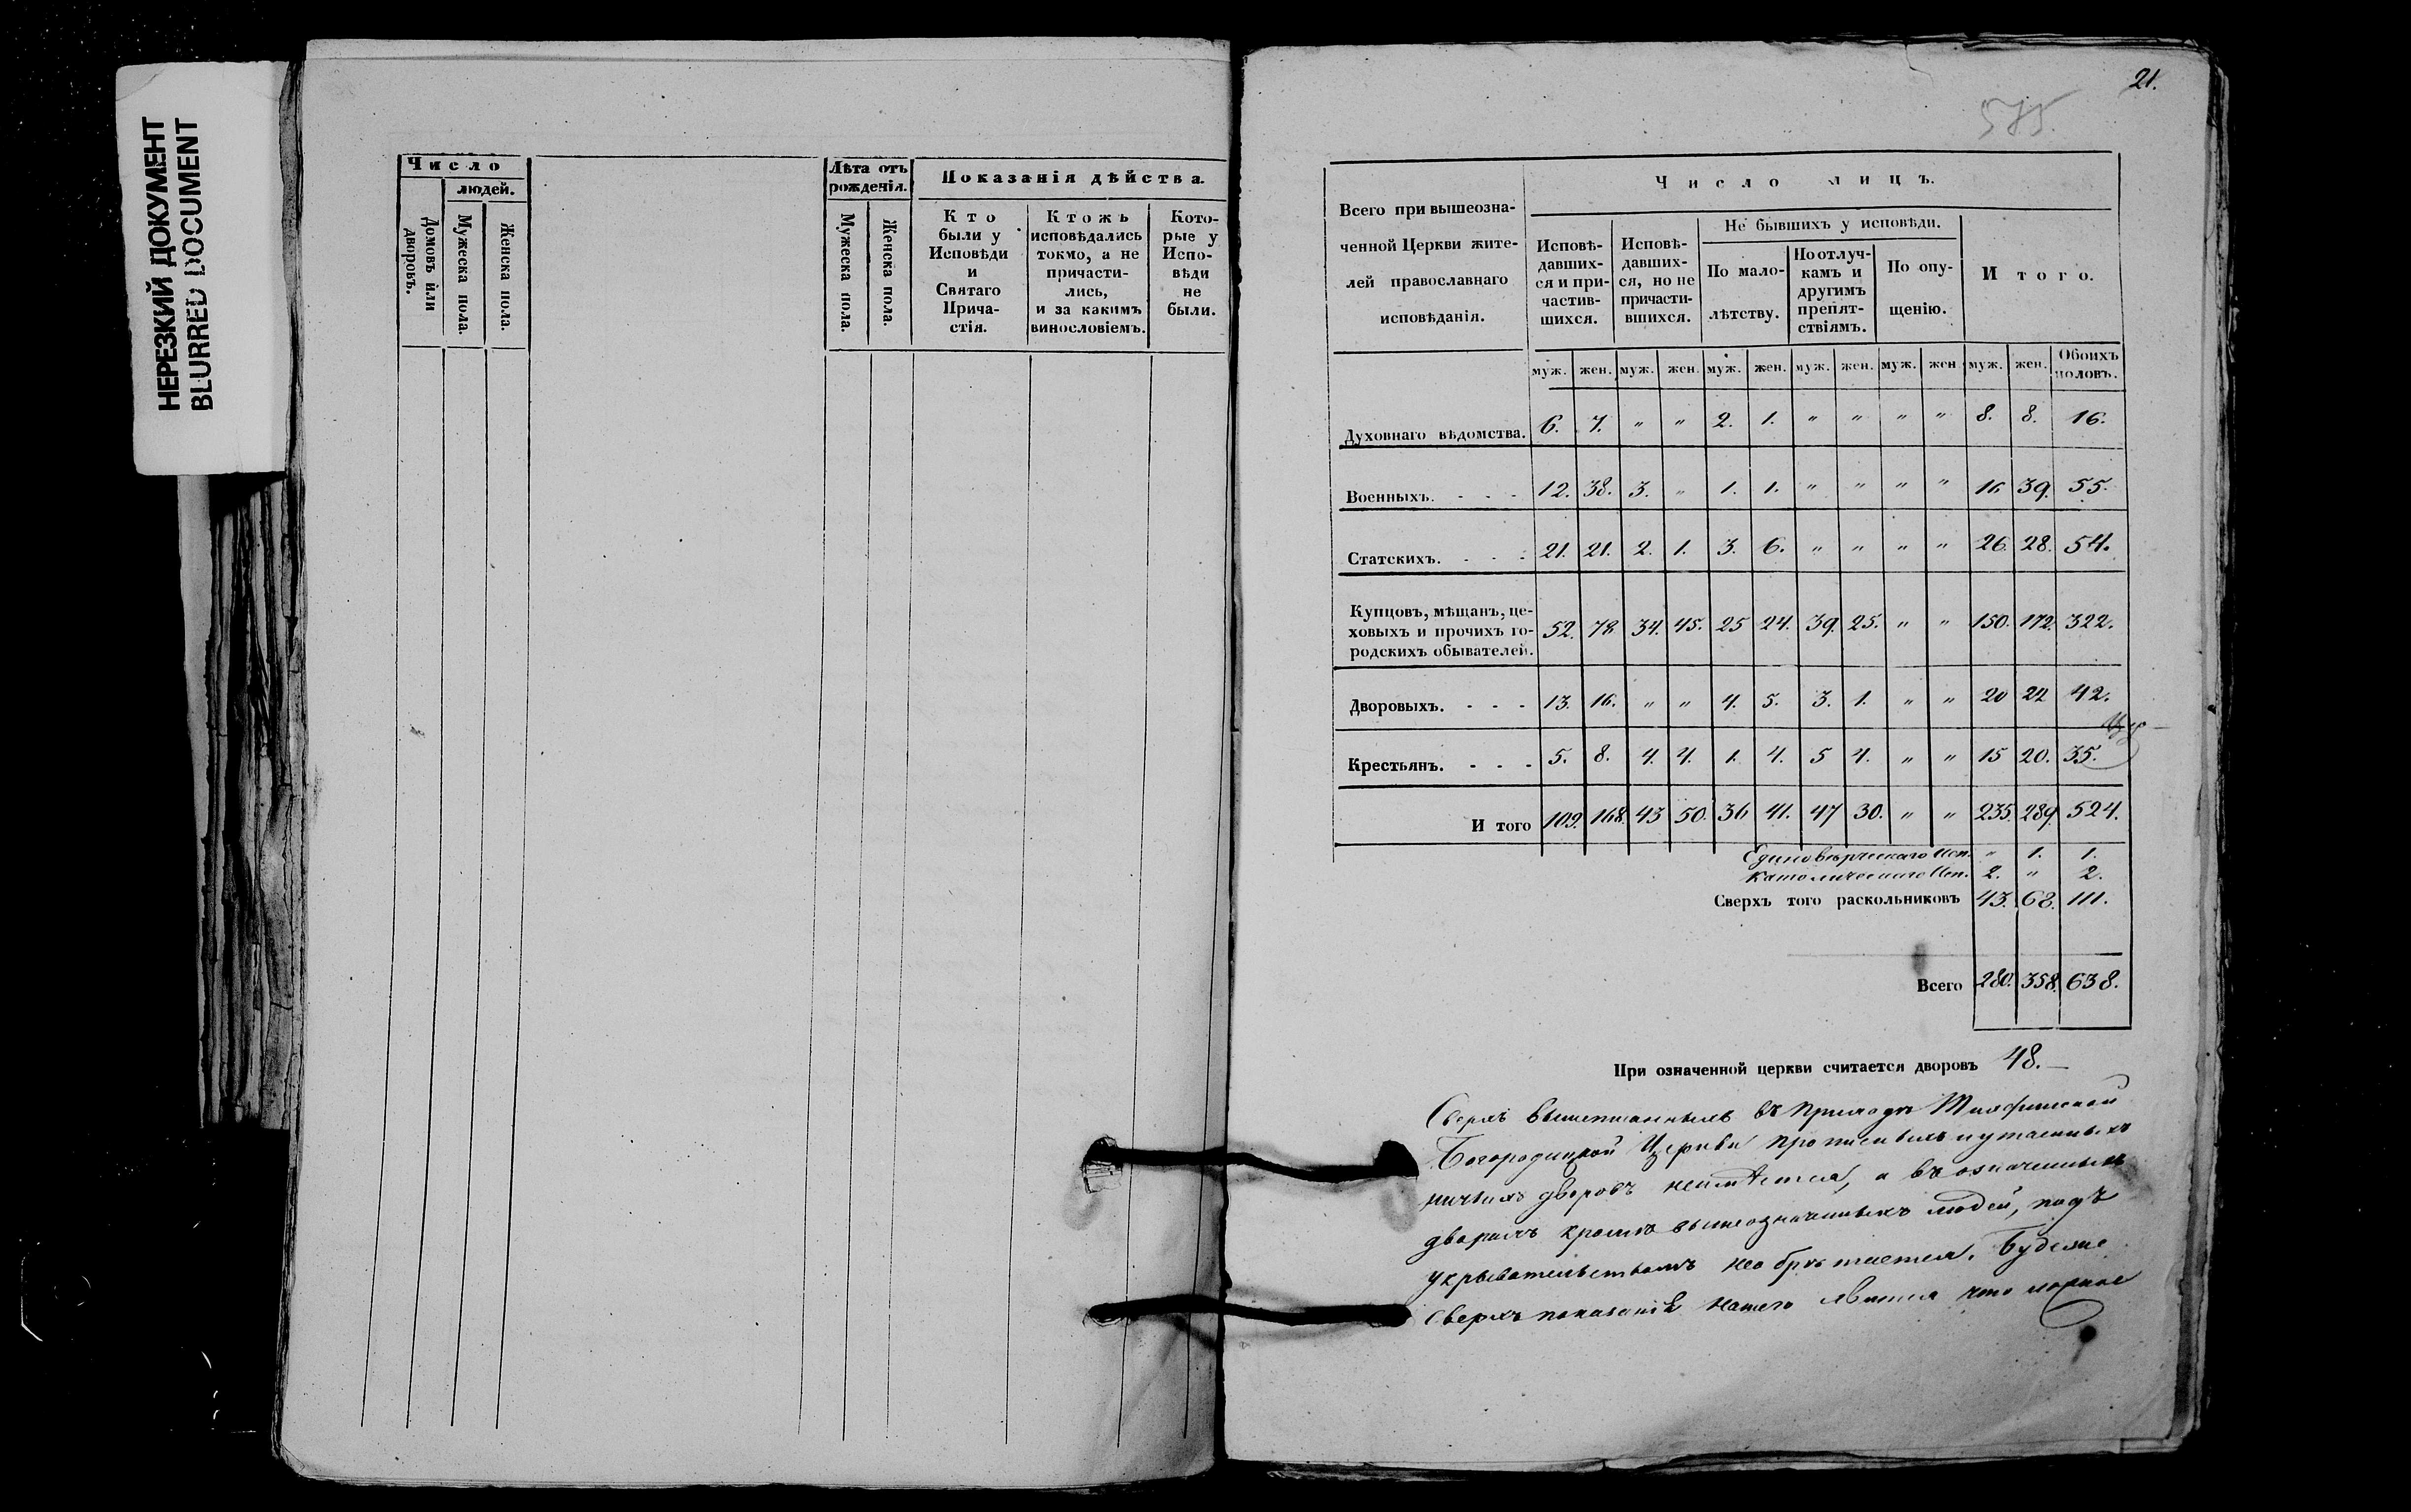 НЕРЕЗКИЙ ДОКУМЕНТ
BLURRED DOCUMENT
Число
людей.
Домовъ или дворовъ.
Мужеска пола.
Женска пола.
Лѣта отъ рожденія.
Мужеска пола.
Женска пола.
Показанія дѣйства.
Кто были у Исповѣди и Святаго Прича-стія.
Ктожъ исповѣдались токмо, а не причасти-лись, и за какимъ винословіемъ.
Кото-рые у Испо-вѣди не были.
21.
Всего при вышеозна-
ченной Церкви жите-
лей православнаго
исповѣданія.
Число лицъ.
Исповѣ-давших-ся и при-частив-шихся.
Исповѣ-давших-ся, но не причасти-вшихся.
Не бывшихъ у исповѣди.
По мало-лѣтству.
По отлуч-камъ и другимъ препят-ствіямъ.
По опу-щенію.
Итого.
муж. жен. муж. жен. муж. жен. муж. жен. муж. жен муж. жен. Обоихъ половъ.
Духовнаго вѣдомства. 6. 7. " " 2. 1. " " " " 8. 8. 16.
Военныхъ. - - - 12. 38. 3. " 1. 1. " " " " 16 39. 55.
Статскихъ. - - - 21. 21. 2. 1. 3. 6. " " " " 26. 28. 54.
Купцовъ, мѣщанъ, це-
ховыхъ и прочихъ го-
родскихъ обывателей. 52. 78 34. 45. 25 24. 39. 25. " " 150. 172. 322.
Дворовыхъ. - - - 13. 16. " " 4. 5. 3. 1. " " 20 22 42.
Крестьянъ. - - - 5. 8. 4. 4. 1. 4. 5 4. " " 15 20. 35.
И того 109. 168. 43 50. 36 41. 47 30. " " 235. 289. 524.
Единовѣрческаго Исп. " 1. 1.
Католическаго Исп. 2. " 2.
Сверхъ того раскольниковъ 43. 68. 111.
Всего 280. 358. 638.
При означенной церкви считается дворовъ 48.
Сверхъ вышеписанныхъ въ приходѣ Тихфинской
Богородицкой Церкви прописныхъ и утаенныхъ
ничьихъ дворовъ неимѣется, а въ означенныхъ
дворахъ кромѣ вышеозначенныхъ людей, подъ
укрывательствомъ необрѣтается. Буде же
сверхъ показанія нашего явится что ложное